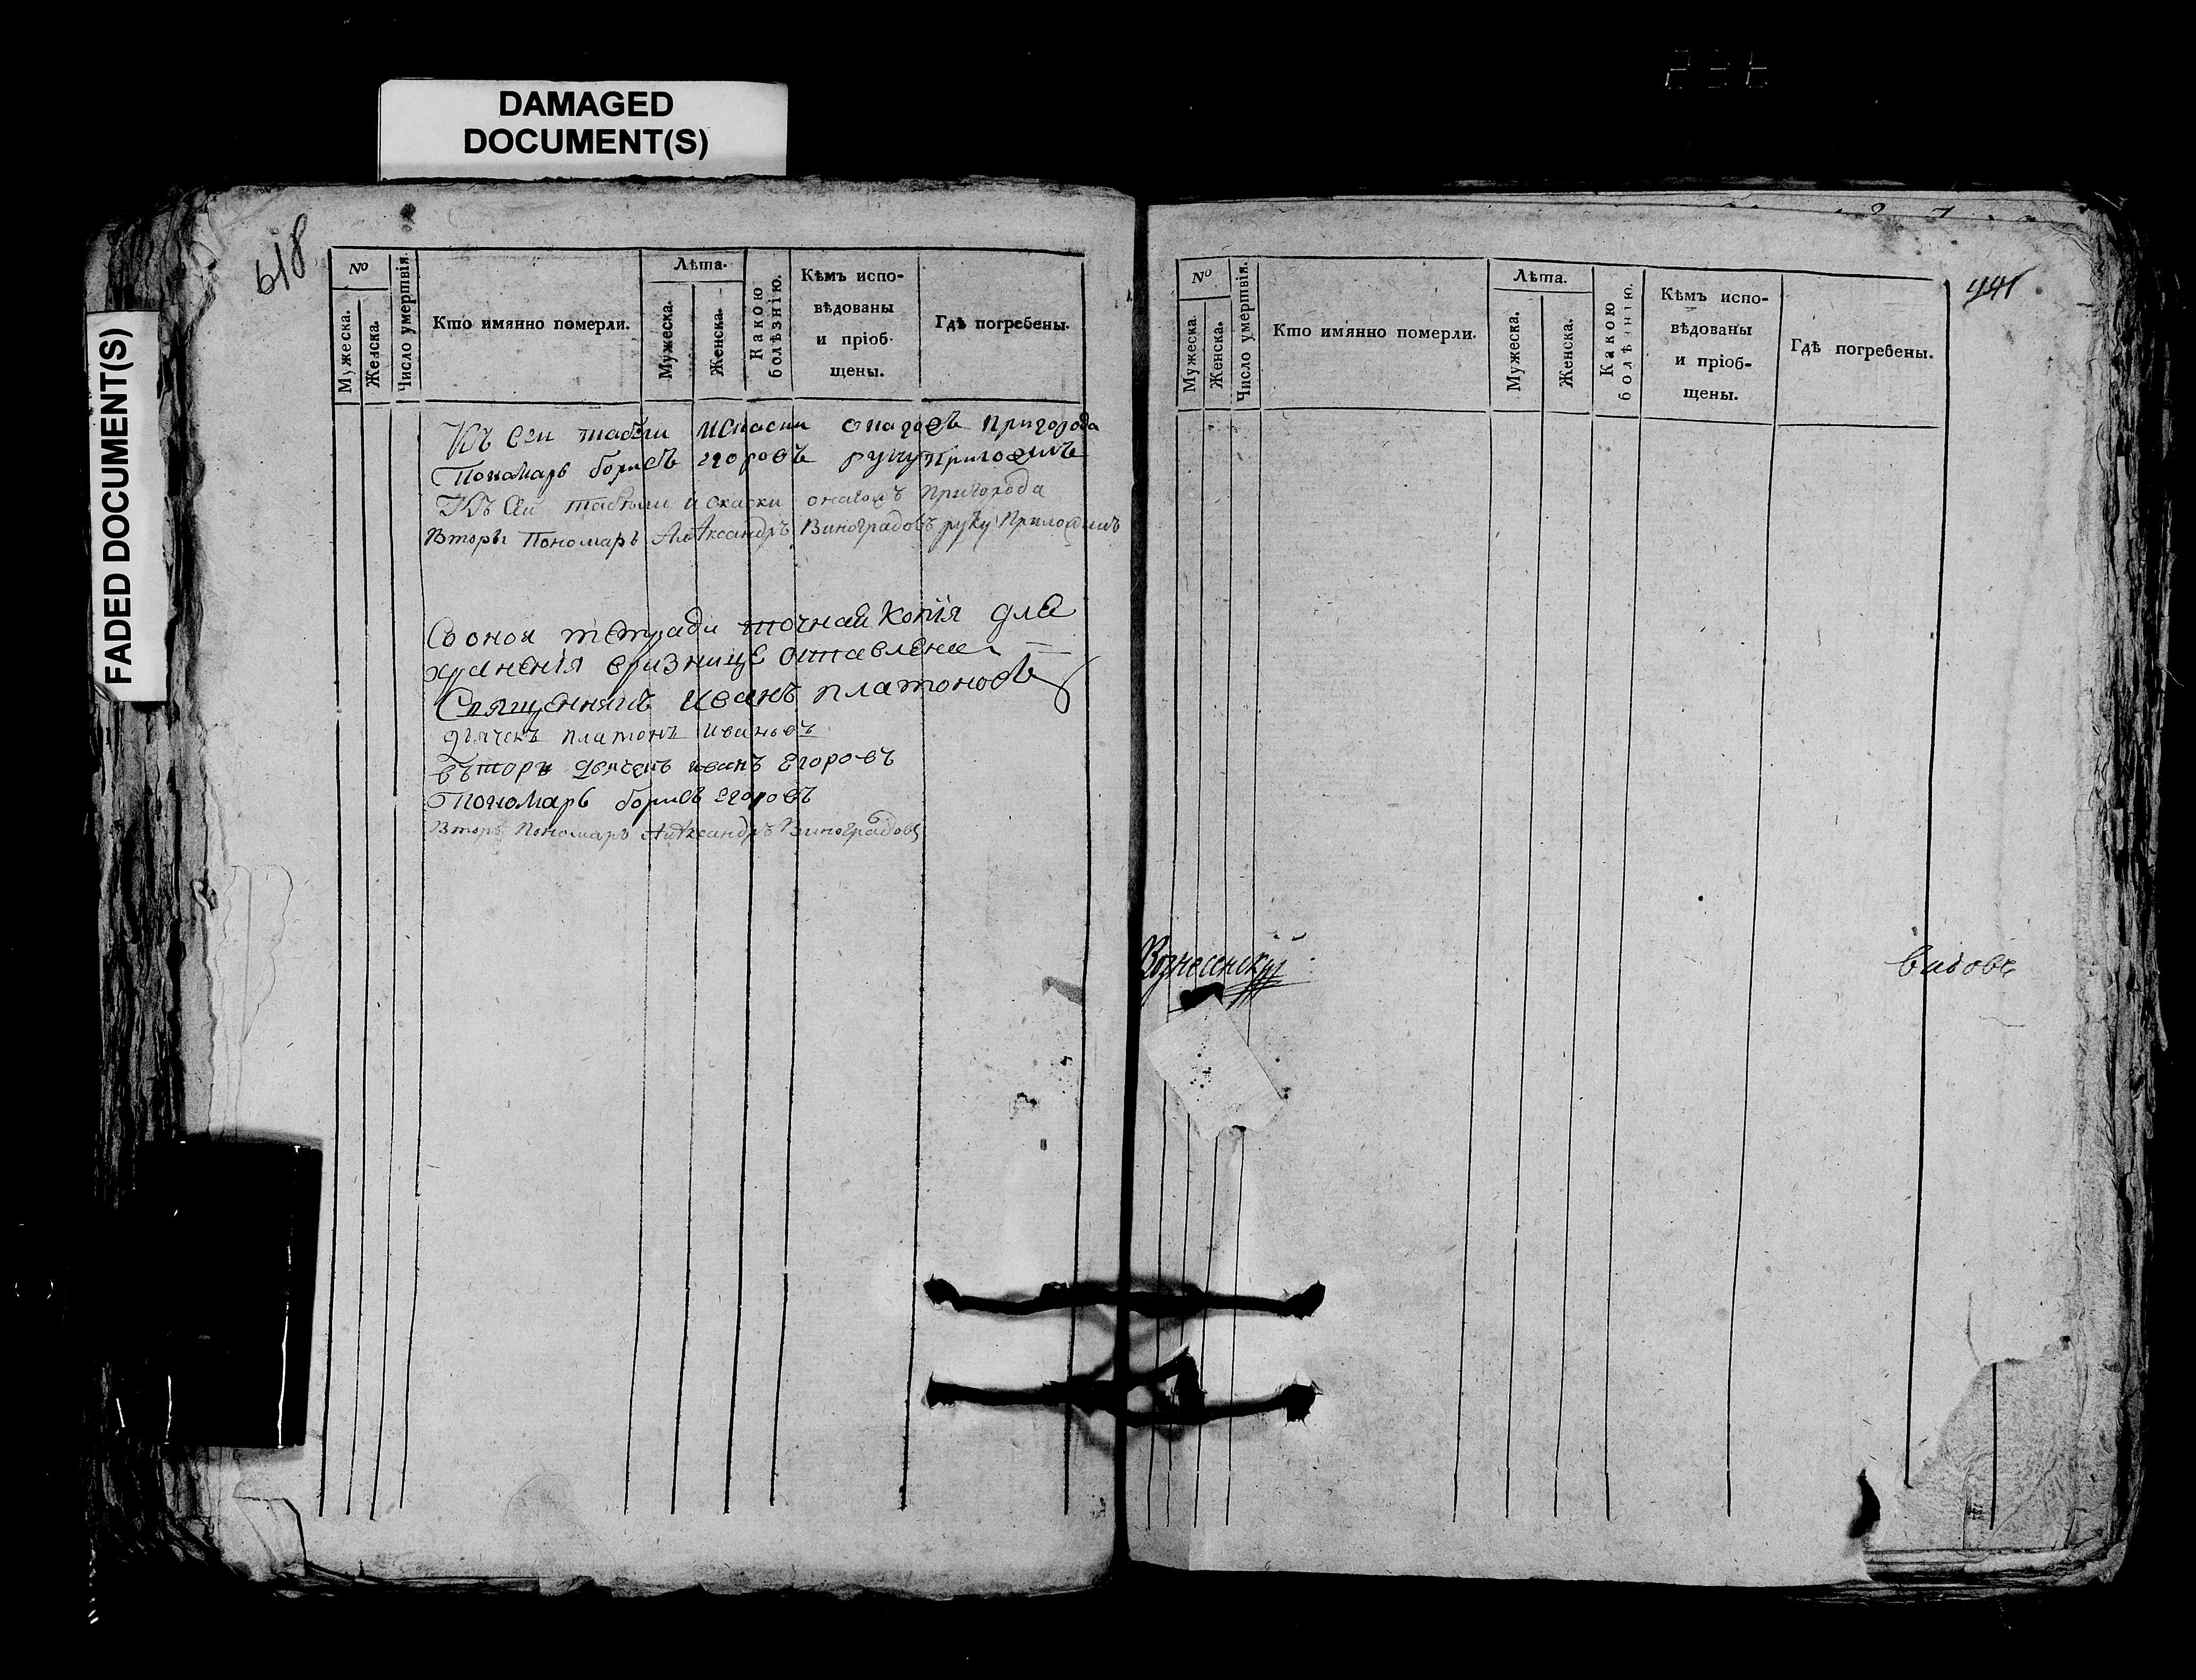 DAMAGED
DOCUMENT(S)
FADED DOCUMENT(S)
618
№
Мужеска.
Женска.
Число умертвія.
Кто имянно померли.
Лѣта.
Мужеска.
Женска.
Какою
болѣзнію.
Кѣмъ испо-
вѣдованы
и пріоб-
щены.
Гдѣ погребены.
Къ сеи табели искаски онагоже пригорода
Пономарь борисъ егоровъ руку приложилъ
Къ сей табѣли и скаски пригорода
Вторы Пономарь Александръ Виноградовъ руку Приложилъ
Со онои тетради точная копія для
храненія вризнице оставлена
Священникъ иванъ платоновъ
дьячекъ платонъ ивановъ
въторы дьячекъ иванъ егоровъ
Пономарь борисъ егоровъ
Вторы Пономарь Александръ Виноградовъ
441
№
Мужеска.
Женска.
Число умертвія.
Кто имянно померли.
Лѣта.
Мужеска.
Женска.
Какою
болѣзнію.
Кѣмъ испо-
вѣдованы
и пріоб-
щены.
Гдѣ погребены.
Вознесенскій